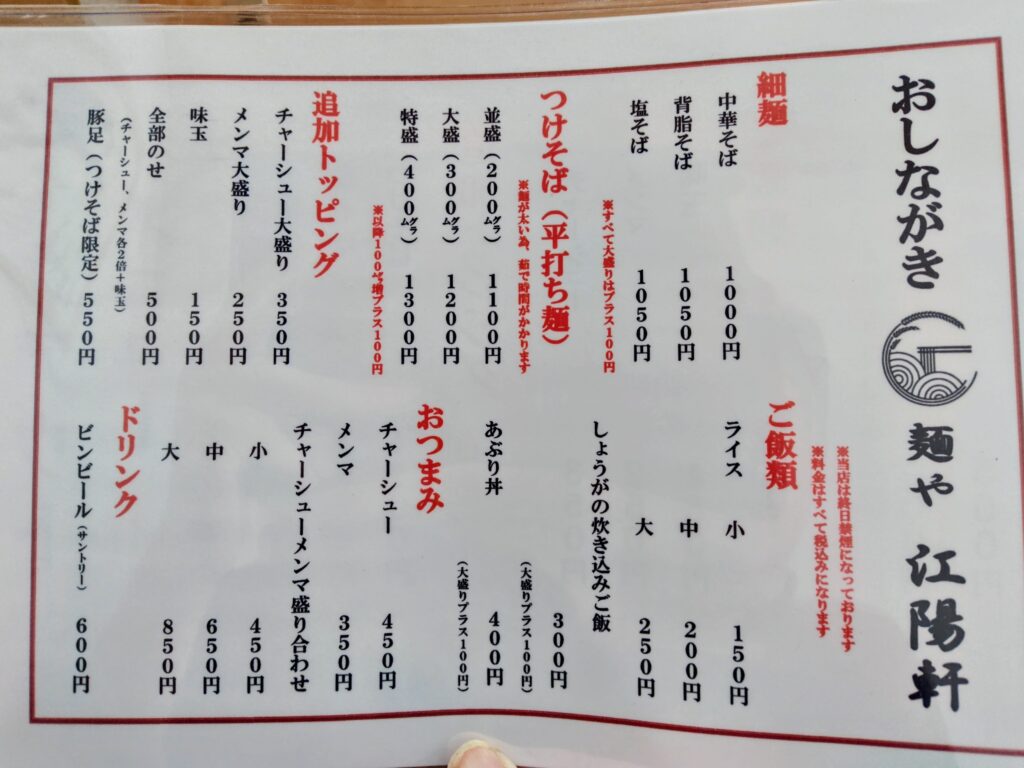 おしながき
麺や 江陽軒
※当店は終日禁煙になっております
※料金はすべて税込みになります
細麺
中華そば 1000円
背脂そば 1050円
塩そば 1050円
※すべて大盛りはプラス100円
つけそば（平打ち麺）
※麺が太い為、茹で時間がかかります
並盛（200㌘） 1100円
大盛（300㌘） 1200円
特盛（400㌘） 1300円
※以降100㌘増プラス100円
追加トッピング
チャーシュー大盛り 350円
メンマ大盛り 250円
味玉 150円
全部のせ 500円
（チャーシュー、メンマ各2倍＋味玉）
豚足（つけそば限定） 550円
ご飯類
ライス 小 150円
中 200円
大 250円
しょうがの炊き込みご飯 300円
（大盛りプラス100円）
あぶり丼 400円
（大盛りプラス100円）
おつまみ
チャーシュー 450円
メンマ 350円
チャーシューメンマ盛り合わせ
小 450円
中 650円
大 850円
ドリンク
ビンビール（サントリー） 600円